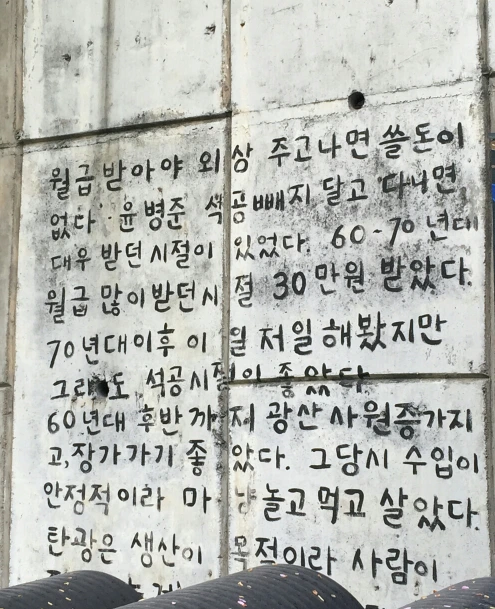 월급 받아야 외상 주고나면 쓸돈이
없다. 윤병준 석공 빼지 달고 다니면
대우 받던 시절이 있었다. 60-70년대
월급 많이받던시절 30만원 받았다.
70년대이후 이일 저일 해봤지만
그래도 석공시절이 좋았다
60년대 후반까지 광산 사원증가지
고,장가가기 좋았다. 그당시 수입이
안정적이라 마냥놀고 먹고 살았다.
탄광은 생산이 목적이라 사람이